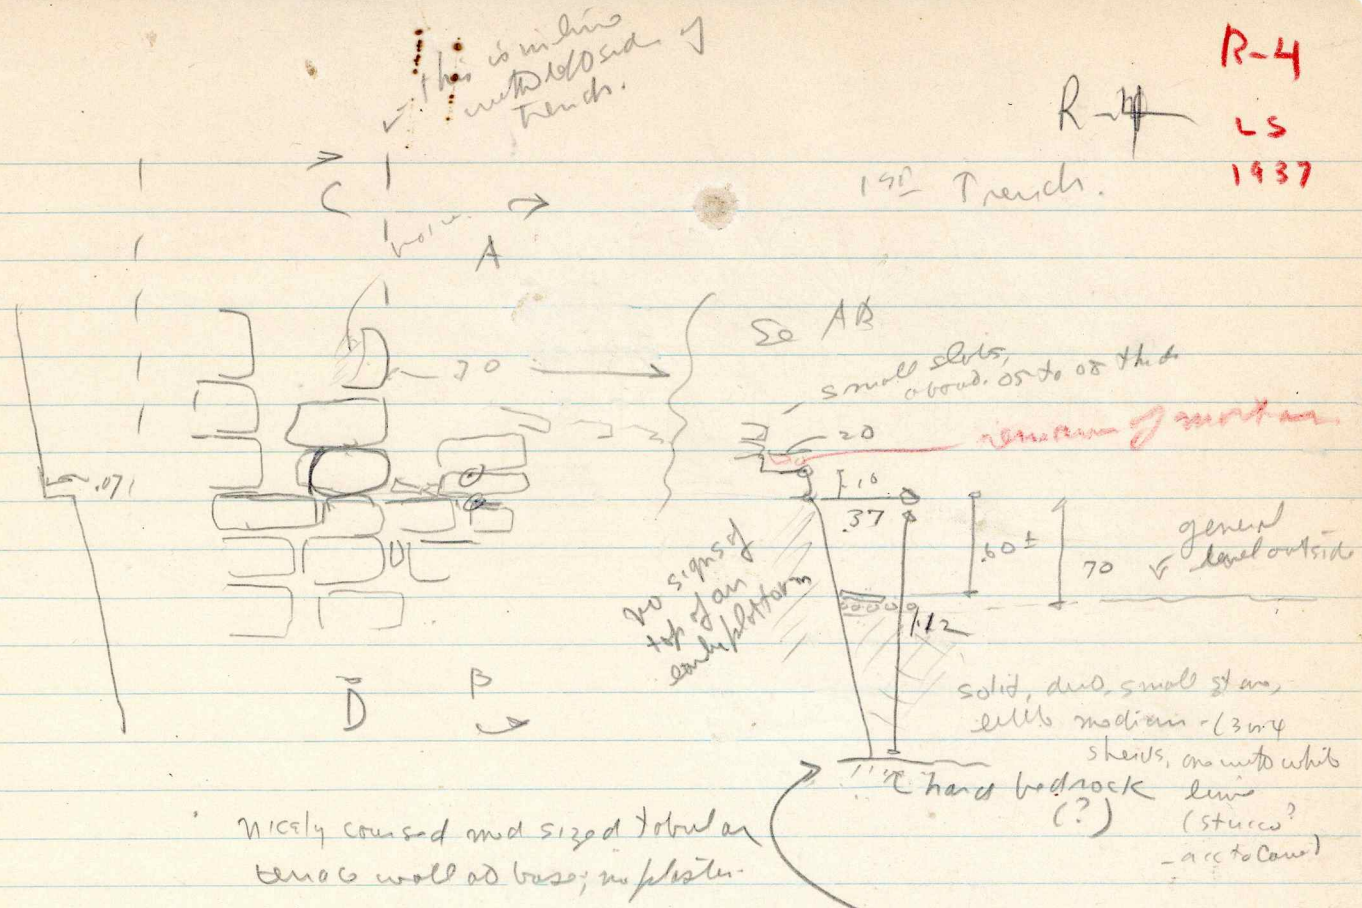 This is in line
with left side of
Trench.
R-4
R-4
LS
1937
1st Trench.
C
A
Se AB
small slabs,
about .05 to 08 thick
20
remains of mortar
30
.07
.10
.37
.60 ±
70
general
level outside
1.12
no signs of
top of an
earlier platform
D
B
solid, dirt, small stone,
little medium - (3 or 4
sherds, one with white
lime
(stucco?
hard bedrock
(?)
nicely coursed med sized tabular
terrace wall at base; no plaster.